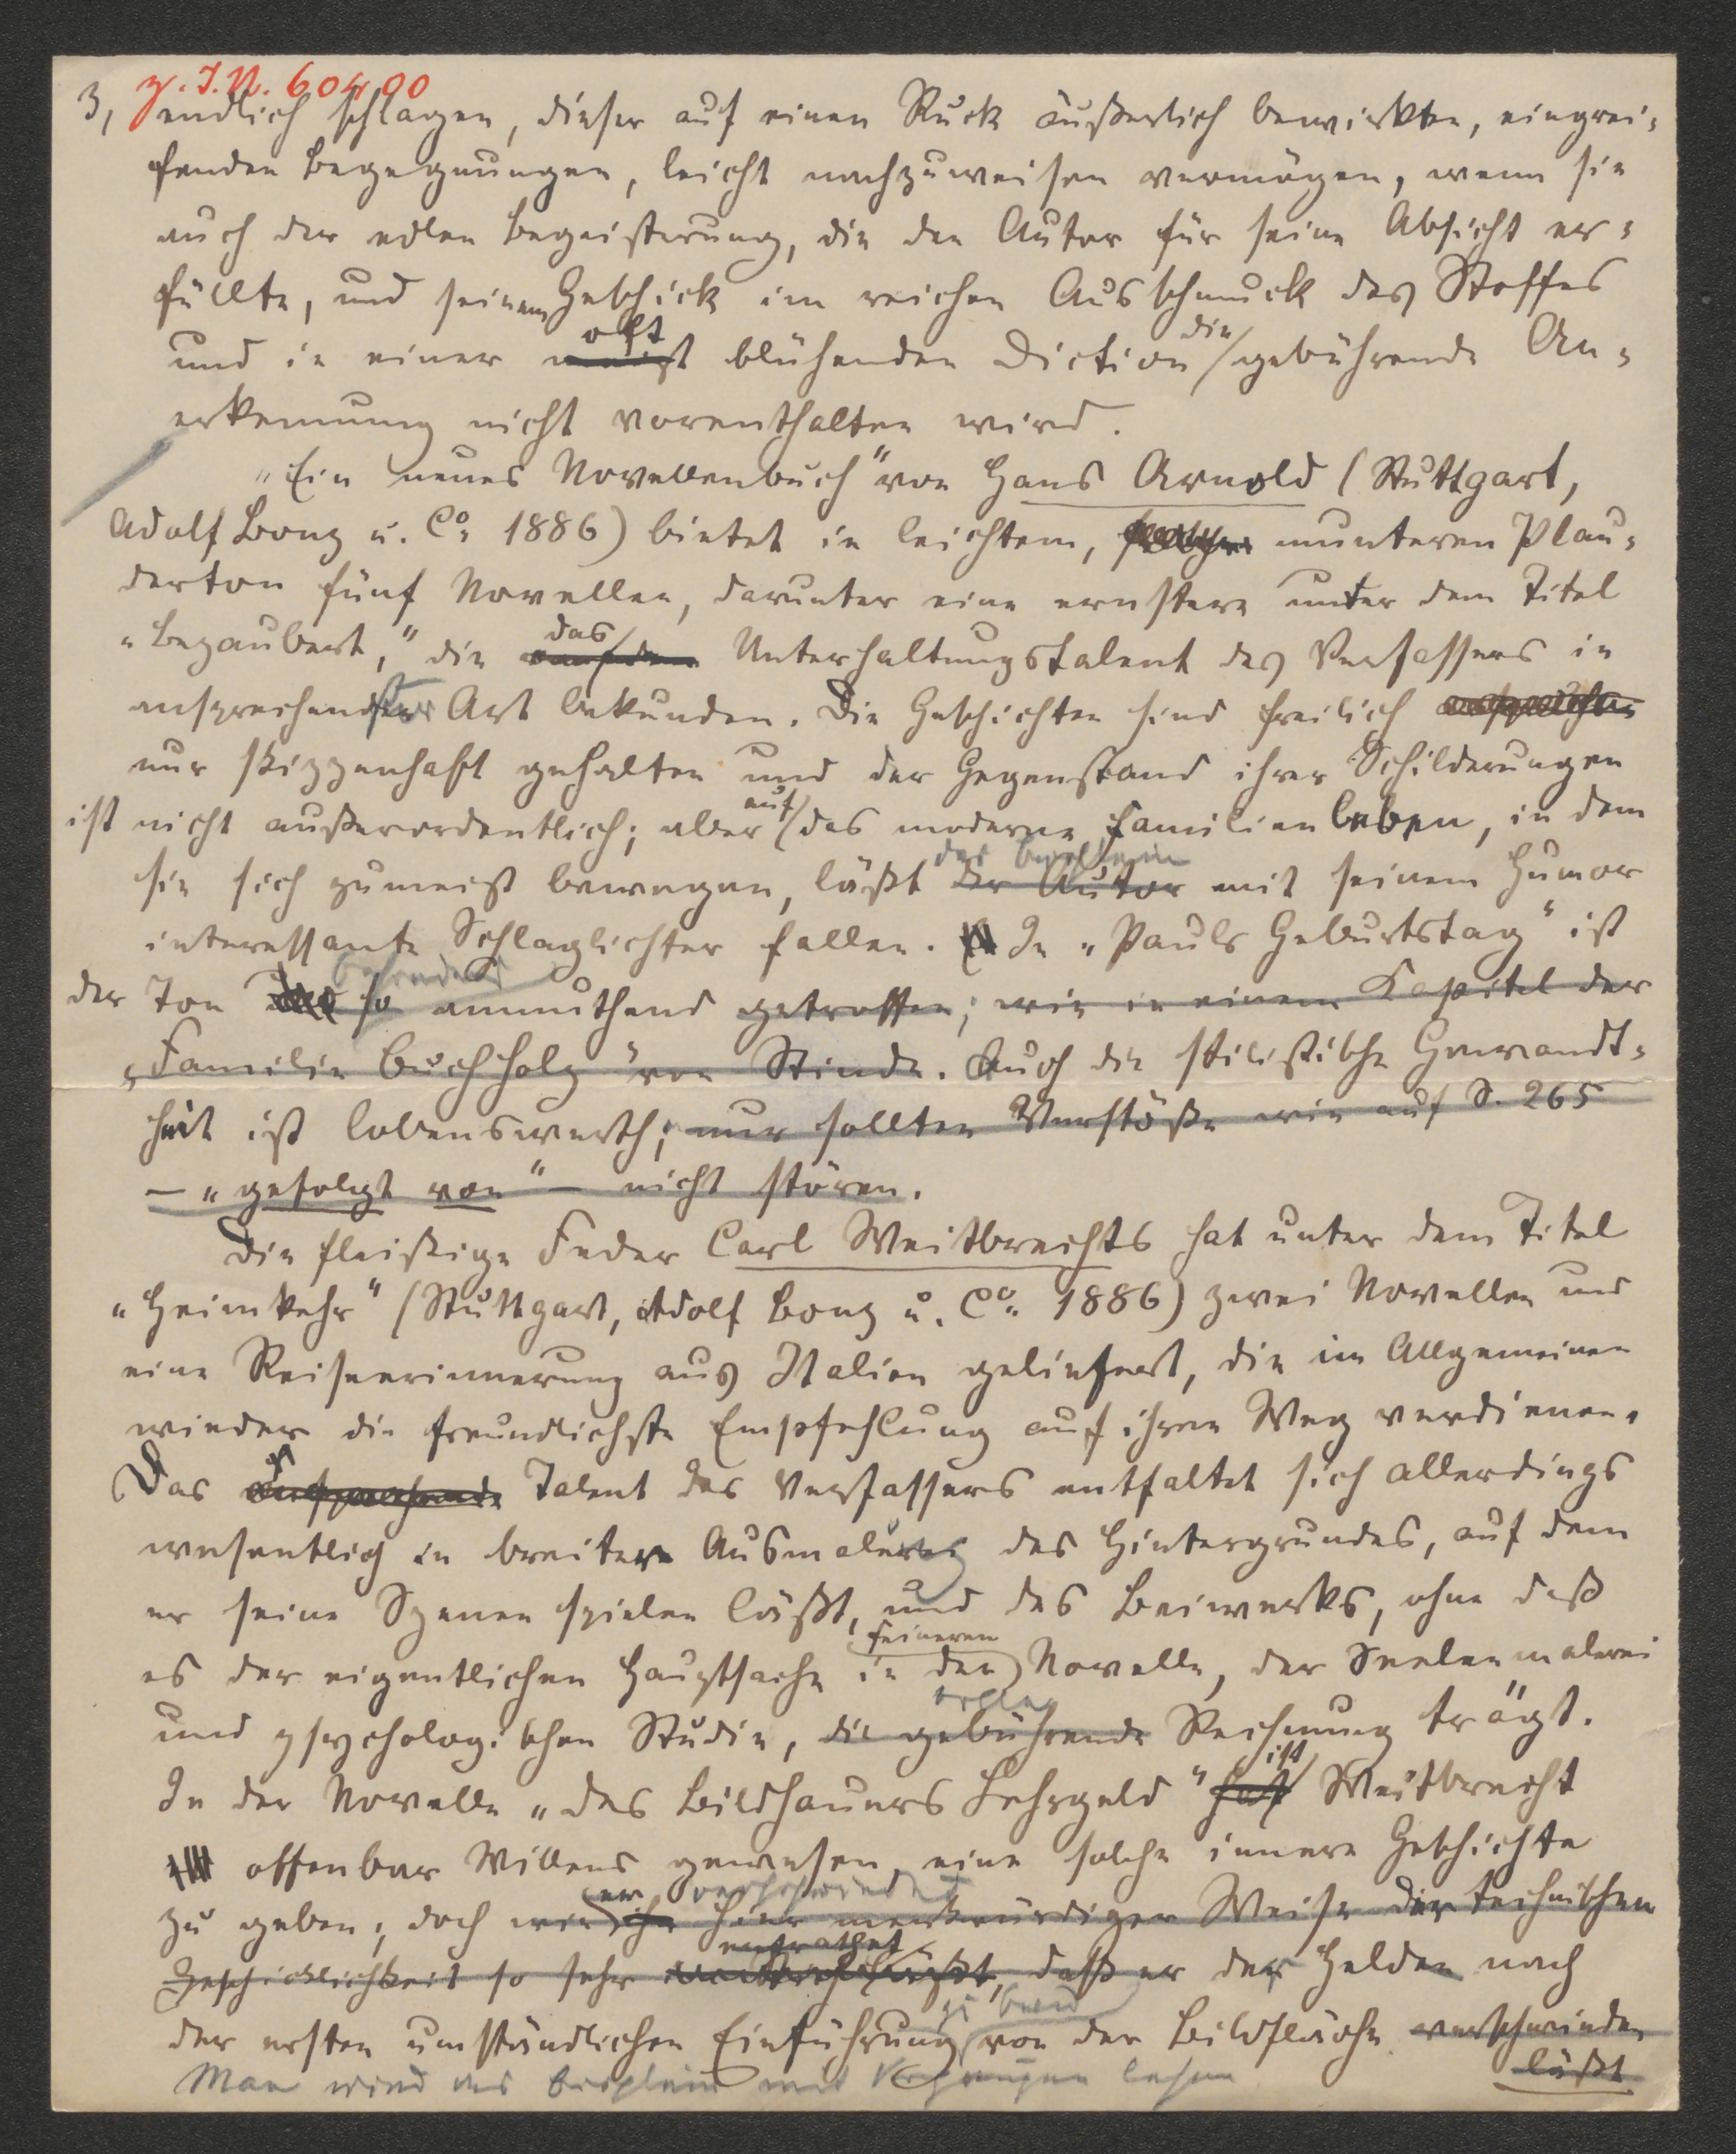 z. I. N. 60400
3, endlich schlagen, dieser auf einen Ruck äußerlich bewirkten, eingrei-
fenden Begegnungen, leicht nachzuweisen vermögen, wenn sie
auch der edlen Begeisterung, die den Autor für seine Absicht er-
füllte, und seinem Geschick im reichen Ausschmuck des Stoffes
oft die
und in einer meist blühenden Diction gebührende An-
erkennung nicht vorenthalten wird.
„Ein neues Novellenbuch" von Hans Arnold (Stuttgart,
Adolf Bonz u. Co. 1886) bietet in leichtem, munteren Plau-
derton fünf Novellen, darunter eine ernstere unter dem Titel
das
„Bezaubert," die Unterhaltungstalent des Verfassers in
ansprechendster Art bekunden. Die Geschichten sind freilich
nur skizzenhaft gehalten und der Gegenstand ihrer Schilderungen
auf
ist nicht außerordentlich; aber das moderne Familienleben, in dem
das Büchlein
sie sich zumeist bewegen, läßt der Autor mit seinem Humor
interessante Schlaglichter fallen. In „Pauls Geburtstag" ist
besonders
der Ton so anmuthend getroffen, wie in einem Kapitel der
„Familie Buchholz" von Stinde. Auch die stilistische Gewandt-
heit ist lobenswerth; nur sollten Verstöße wie auf S. 265
– „gefolgt von" – nicht stören.
Die fleißige Feder Carl Weitbrechts hat unter dem Titel
„Heimkehr" (Stuttgart, Adolf Bonz u. Co. 1886) zwei Novellen und
eine Reiseerinnerung aus Italien geliefert, die im Allgemeinen
wieder die freundlichste Empfehlung auf ihren Weg verdienen.
Das Talent des Verfassers entfaltet sich allerdings
wesentlich in breiter Ausmalung des Hintergrundes, auf dem
er seine Szenen spielen läßt, und des Beiwerks, ohne daß
feineren
es der eigentlichen Hauptsache in der Novelle, der Seelenmalerei
und psychologischen Studie, die gebührende Rechnung trägt.
ist
In der Novelle „Des Bildhauers Lehrgeld" hat Weitbrecht
offenbar Willens gewesen, eine solche innere Geschichte
verschwindet
zu geben; doch hier merkwürdiger Weise der technischen
entrathet
Geschicklichkeit so sehr, daß er den Helden nach
der ersten umständlichen Einführung von der Bildfläche verschwinden
läßt
Man wird das Büchlein mit Vergnügen lesen